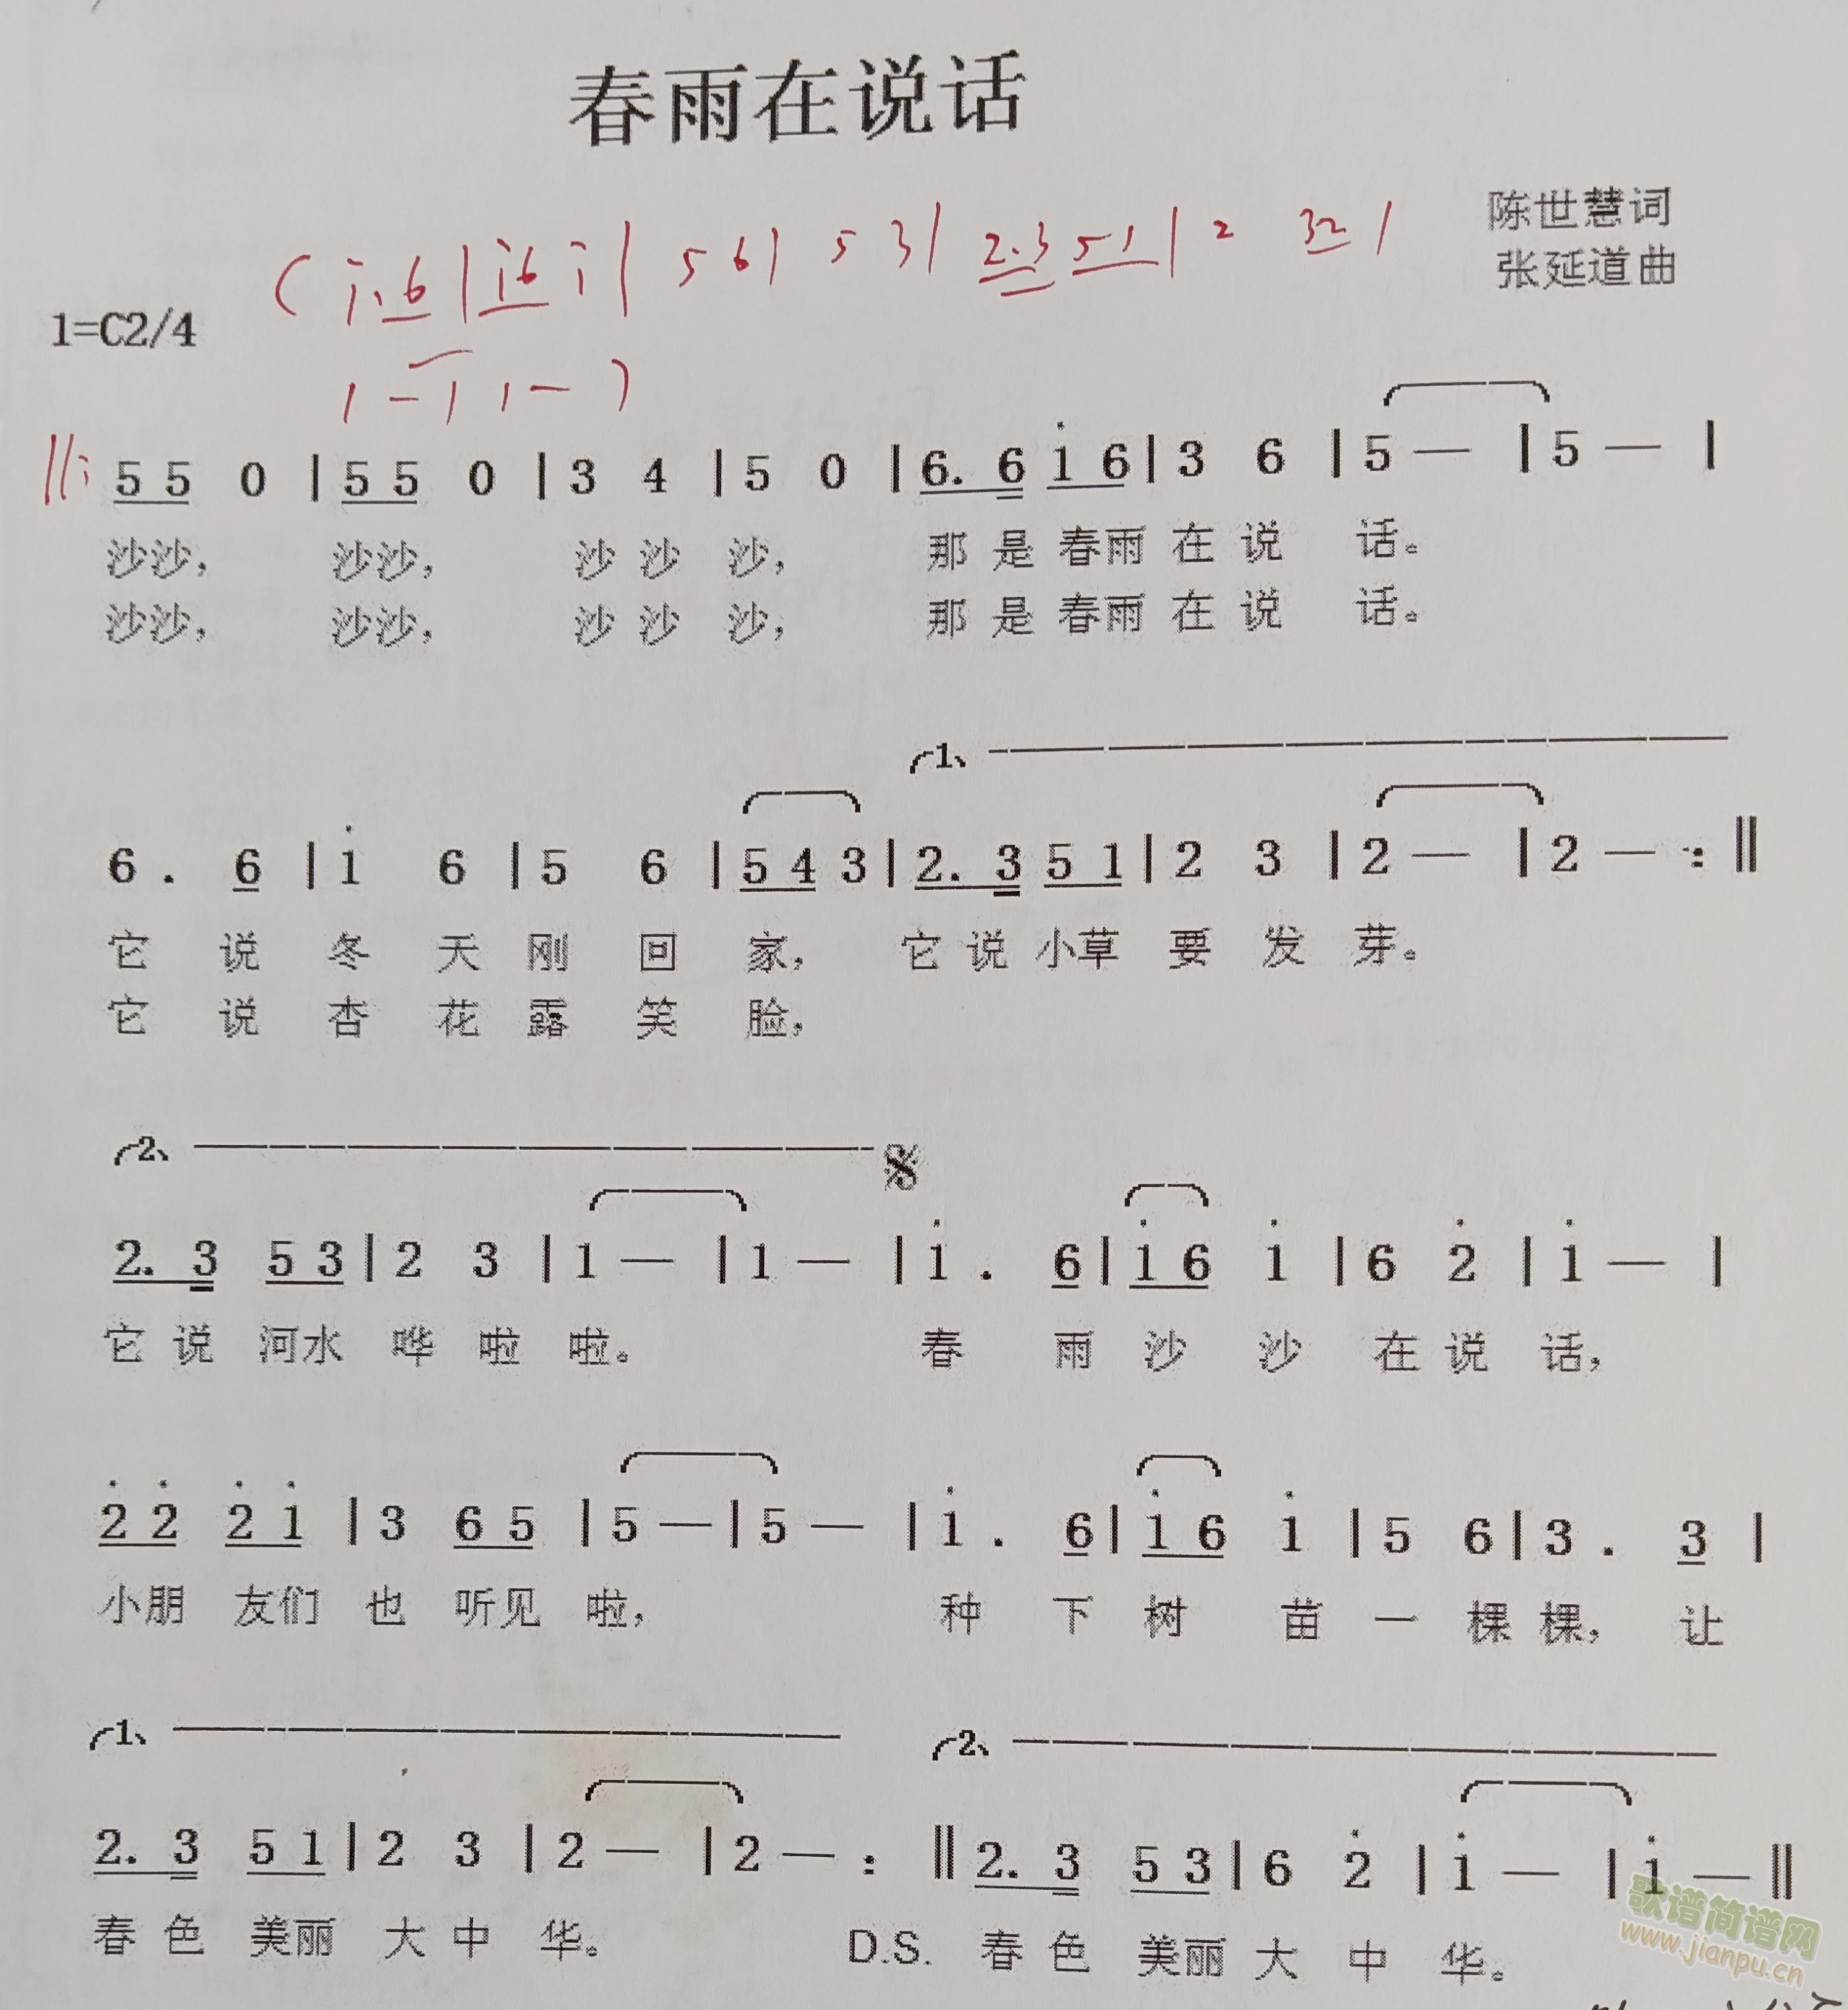 春雨在说话
陈世慧词
张延道曲
1=C2/4
( i. 6 | i 6 i | 5 6 | 5 3 | 2. 3 5 1 | 2 3 2 |
1 — | 1 — )
||: 5 5 0 | 5 5 0 | 3 4 | 5 0 | 6. 6 i 6 | 3 6 | 5 — | 5 — |
沙沙， 沙沙， 沙 沙 沙， 那 是 春雨 在 说 话。
沙沙， 沙沙， 沙 沙 沙， 那 是 春雨 在 说 话。
1、
6 . 6 | i 6 | 5 6 | 5 4 3 | 2. 3 5 1 | 2 3 | 2 — | 2 — :||
它 说 冬 天 刚 回 家， 它 说 小草 要 发 芽。
它 说 杏 花 露 笑 脸，
2、
2. 3 5 3 | 2 3 | 1 — | 1 — | i . 6 | i 6 i | 6 2̇ | i — |
它 说 河水 哗 啦 啦。 春 雨 沙 沙 在 说 话，
2̇ 2̇ 2̇ i | 3 6 5 | 5 — | 5 — | i . 6 | i 6 i | 5 6 | 3 . 3 |
小朋 友们 也 听见 啦， 种 下 树 苗 一 棵 棵， 让
1、 2、
2. 3 5 1 | 2 3 | 2 — | 2 — :|| 2. 3 5 3 | 6 2̇ | i — | i — ||
春 色 美丽 大 中 华。 D.S. 春 色 美丽 大 中 华。
歌谱简谱网
www.jianpu.cn